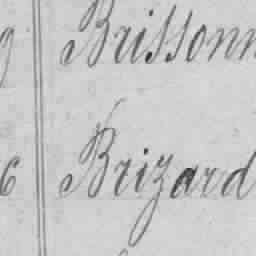 9 Brissonn
6 Brizard